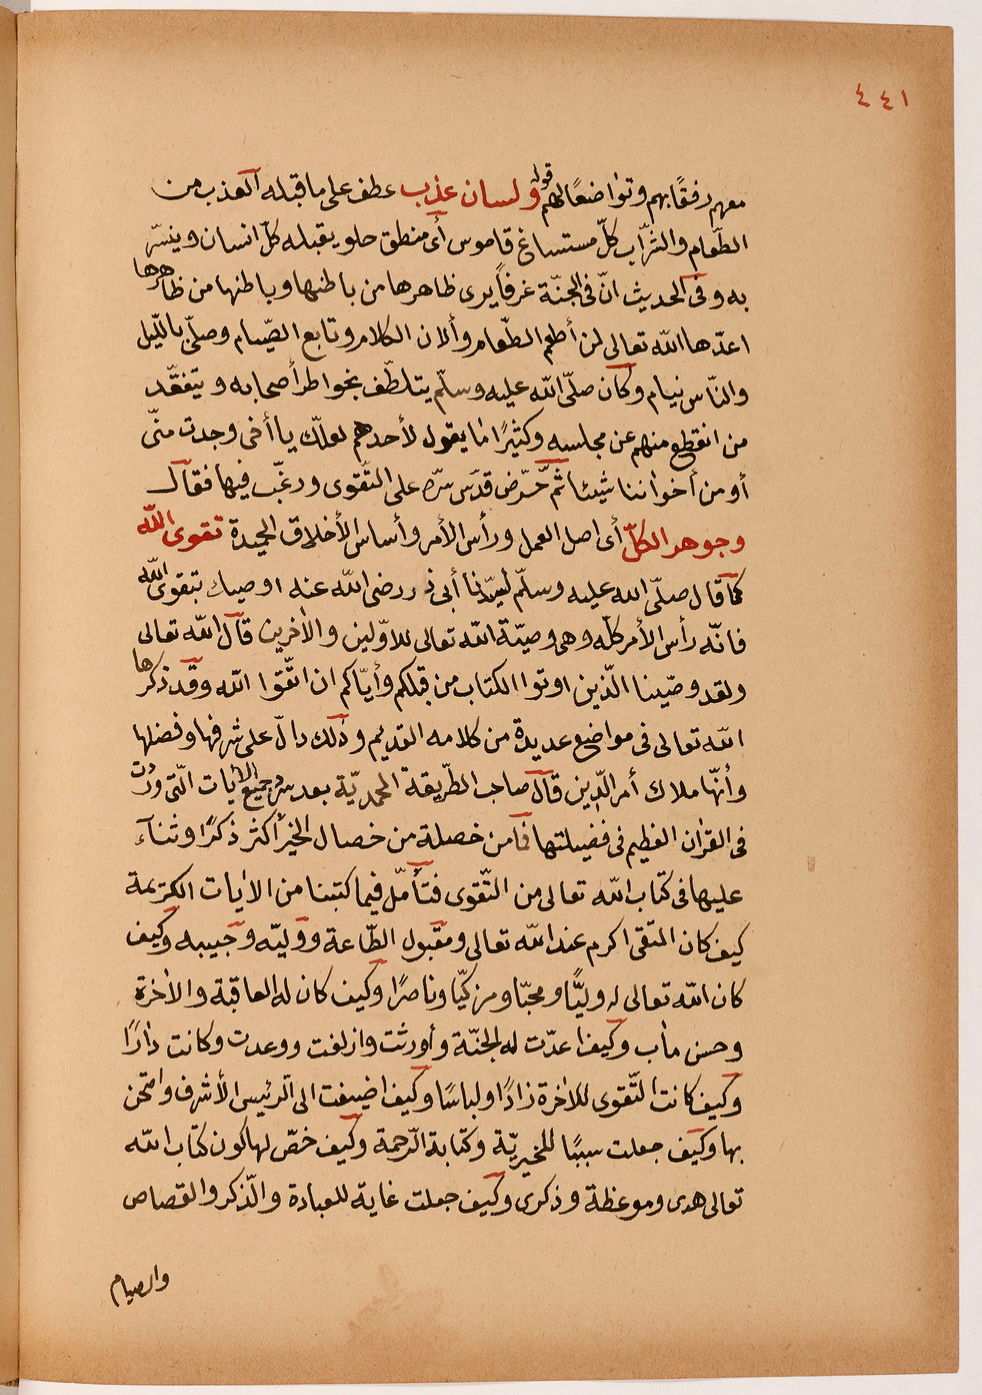 ٤٤١
معهم رفقًا بهم وتواضعًا لهم قوله ولسان عذب عطف على ما قبله العذب من
الطّعام والشّراب كلّ مستساغ قاموس أى منطق حلو يقبله كلّ انسان وينسرّ
به وفى الحديث انّ فى الجنّة غرفاً يرى ظاهرها من باطنها وباطنها من ظاهرها
اعدّها الله تعالى لمن أطعم الطّعام وألان الكلام وتابع الصّيام وصلّى بالليل
والنّاس نيام وكان صلّى الله عليه وسلّم يتلطّف بخواطر أصحابه ويتفقّد
من انقطع منهم عن مجلسه وكثيرًا ما يقول لأحدهم لعلّك يا أخى وجدت منّى
أو من أخواننا شيئا ثمّ حّرض قدّس سرّه على التّقوى ورغّب فيها فقال
وجوهر الكلّ أى اصل العمل ورأس الأمر وأساس الأخلاق الحميدة تقوى الله
كما قال صلّى الله عليه وسلّم لسيّدنا أبى ذر رضى الله عنه اوصيك بتقوى الله
فانّه رأس الأمر كلّه وهى وصيّة الله تعالى للاوّلين والاٰخرين قال الله تعالى
ولقد وصّينا الّذين اوتوا الكتاب من قبلكم وأيّاكم ان اتّقوا الله وقد ذكرها
الله تعالى فى مواضع عديدة من كلامه القديم وذلك دالّ على شرفها وفضلها
وأنّها ملاك أمر الدّين قال صاحب الطّريقة المحمديّة بعد سرد جميع الاٰيات الّتى وردت
فى القراٰن العظيم فى فضيلتها فما من خصلة من خصال الخير أكثر ذكرًا وثناء
عليها فى كتاب الله تعالى من التّقوى فتأمّل فيما كتبنا من الاٰيات الكريمة
كيف كان المتقى اكرم عند الله تعالى ومقبول الطّاعة ووليّه وحبيبه وكيف
كان الله تعالى له وليًّا ومحبّا ومزكيّا وناصرًا وكيف كان له العاقبة والاٰخرة
وحسن ماٰب وكيف اعدّت له الجنّة وأورثت وازلفت ووعدت وكانت دارًا
وكيف كانت التّقوى للاٰخرة زادًا ولباسًا وكيف اضيفت الى الرّئيس الأشرف وامتحن
بها وكيف جعلت سببًا للخيريّة وكتابة الرّحمة وكيف خصّ لها كون كتاب الله
تعالى هدى وموعظة وذكرى وكيف جعلت غاية للعبادة والذّكر والقصاص
والصيام